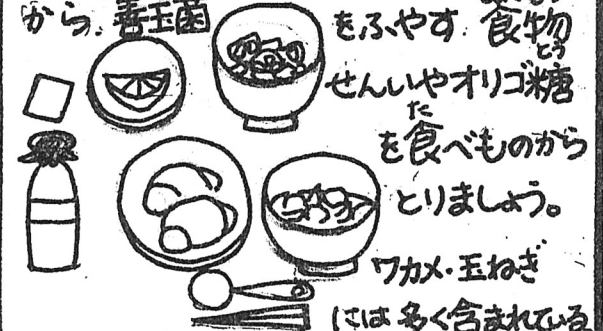 から、善玉菌
をふやす。食物
せんいやオリゴ糖
とう
を食べものから
た
とりましょう。
ワカメ・玉ねぎ
には多く含まれている